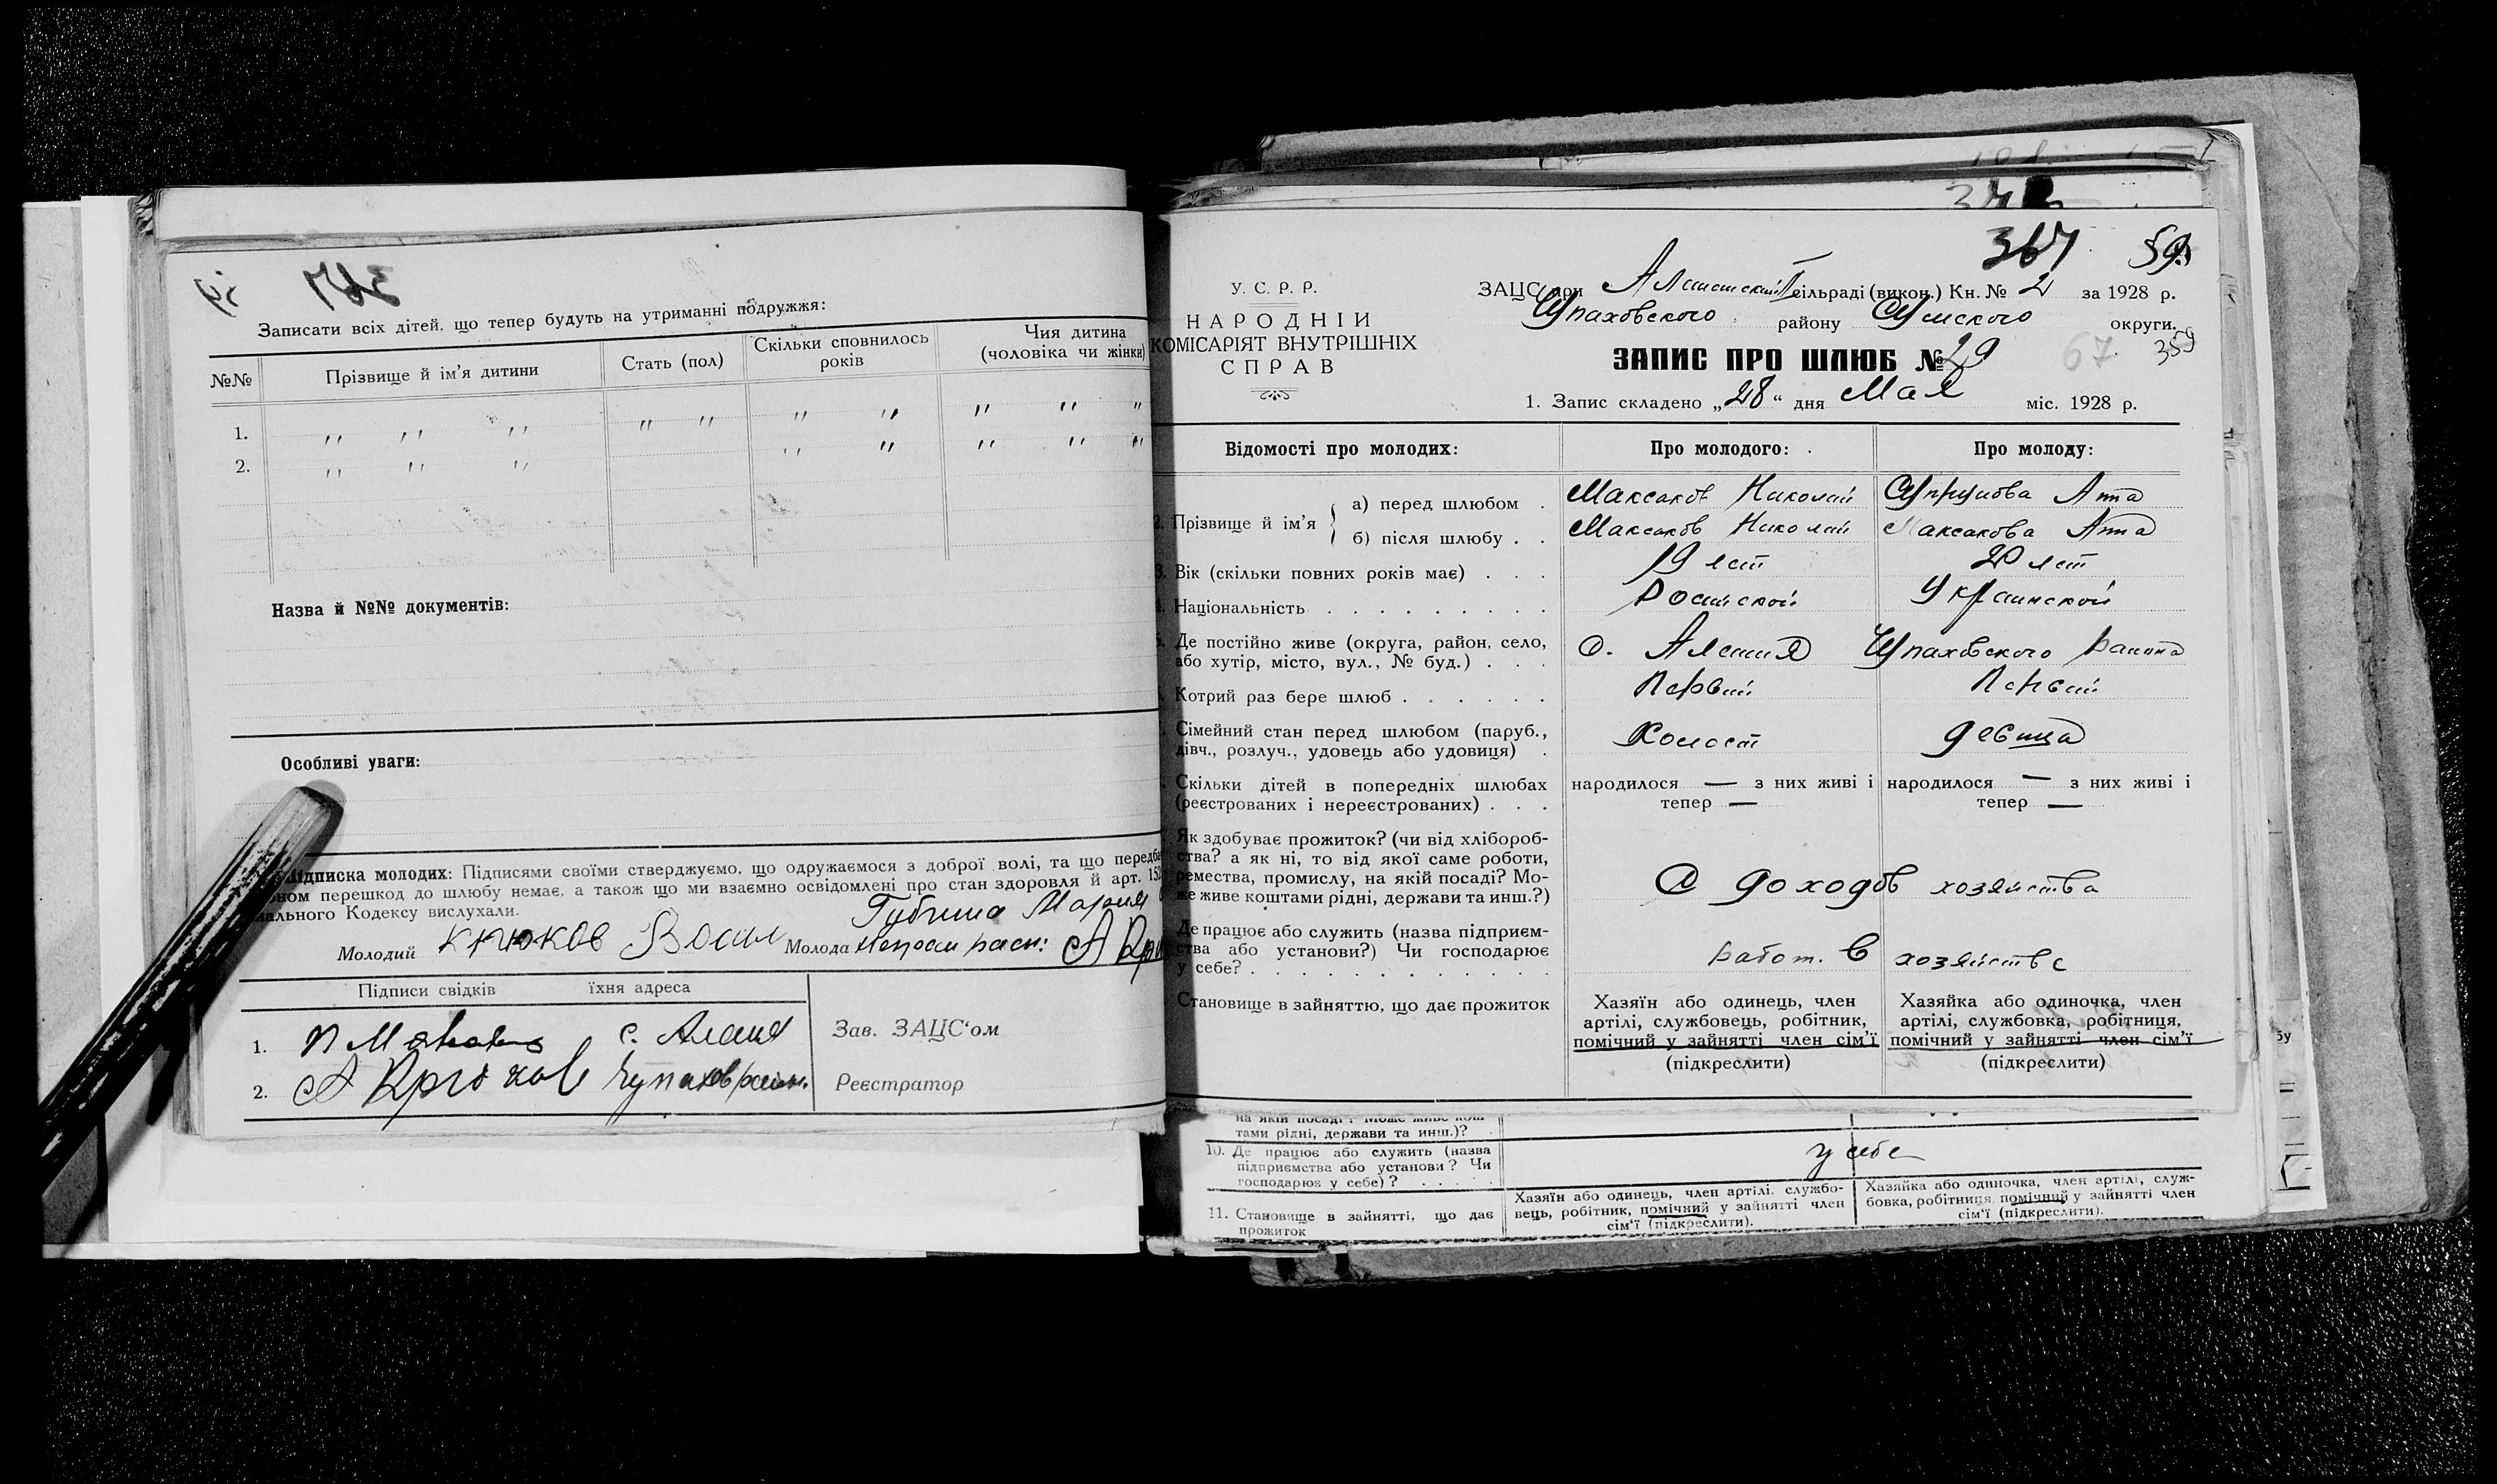 367
Записати всіх дітей, що тепер будуть на утриманні подружжя:
№№ Прізвище й ім'я дитини Стать (пол) Скільки сповнилось років Чия дитина (чоловіка чи жінки)
1. " " " " " " " " " "
2. " " " " " " " "
Назва й №№ документів:
Особливі уваги:
Підписка молодих: Підписями своїми стверджуємо, що одружаємося з доброї волі, та що
перешкод до шлюбу немає, а також що ми взаємно освідомлені про стан здоровля й арт.
Кодексу вислухали.
Губина Мария
Молодий Крюков Молода
Підписи свідків їхня адреса
1. с. Алешня
2. А Крюков
Зав. ЗАЦС'ом
Реєстратор
367 59
У. С. Р. Р.
НАРОДНІЙ
КОМІСАРІЯТ ВНУТРІШНІХ
СПРАВ
ЗАЦС при сільраді (викон.) Кн. № 2 за 1928 р.
району Сумского округи.
359
67
ЗАПИС ПРО ШЛЮБ № 29
1. Запис складено „28“ дня Мая міс. 1928 р.
Відомості про молодих: Про молодого: Про молоду:
2. Прізвище й ім'я
а) перед шлюбом . Максаков Николай Анна
б) після шлюбу . . Максаков Николай Максакова Анна
3. Вік (скільки повних років має) . . . 19 лет 20 лет
Національність . . . . . . . . . Украинской
Де постійно живе (округа, район, село,
або хутір, місто, вул., № буд.) . . . с. Алешня
Котрий раз бере шлюб . . . . . . Первий Первий
Сімейний стан перед шлюбом (паруб.,
дівч., розлуч., удовець або удовиця) . Холост девица
Скільки дітей в попередніх шлюбах
(реєстрованих і нереєстрованих) . . .
народилося — з них живі і
тепер —
народилося — з них живі і
тепер —
Як здобуває прожиток? (чи від хлібороб-
ства? а як ні, то від якої саме роботи,
ремества, промислу, на якій посаді? Мо-
же живе коштами рідні, держави та инш.?)
С доходов хозяйства
Де працює або служить (назва підприєм-
ства або установи?) Чи господарює
у себе? . . . . . . . . . . . . .
работ. в хозяйстве
Становище в зайняттю, що дає прожиток
Хазяїн або одинець, член
артілі, службовець, робітник,
помічний у зайнятті член сім'ї
(підкреслити)
Хазяйка або одиночка, член
артілі, службовка, робітниця,
помічний у зайнятті член сім'ї
(підкреслити)
тами рідні, держави та инш.)?
10. Де працює або служить (назва
підприємства або установи? Чи
господарює у себе)? . . . . .
у себе
11. Становище в зайнятті, що дає
прожиток
Хазяїн або одинець, член артілі, службо-
вець, робітник, помічний у зайнятті член
сім'ї (підкреслити).
Хазяйка або одиночка, член артілі, служ-
бовка, робітниця, помічний у зайнятті член
сім'ї (підкреслити).